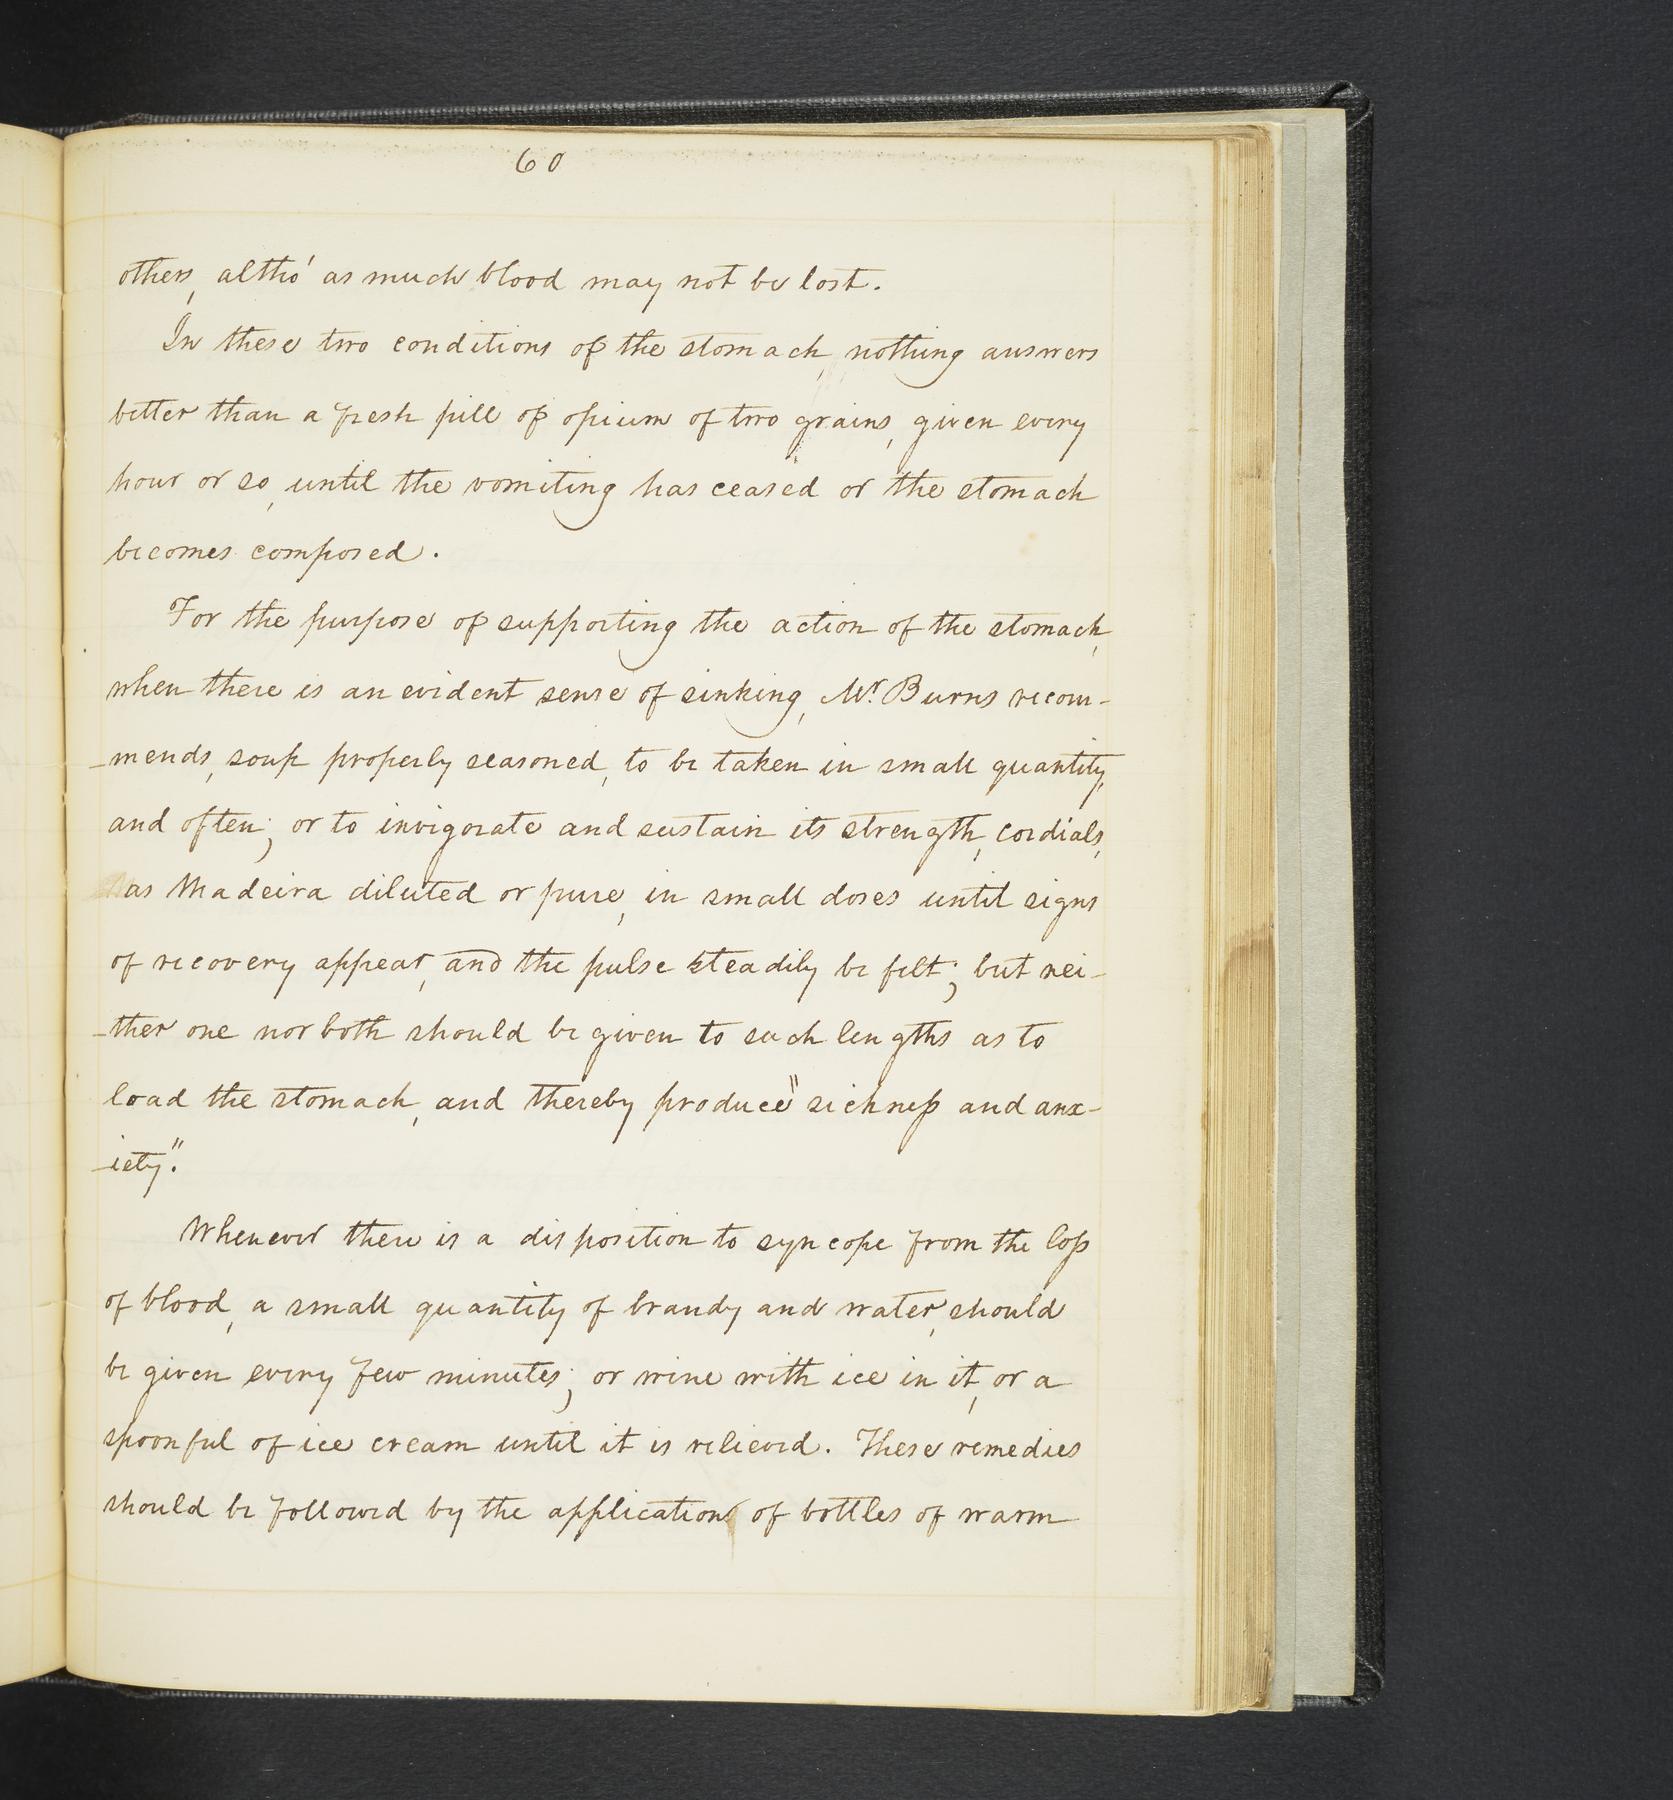 60
others, altho' as much blood may not be lost.
In these two conditions of the stomach, nothing answers
better than a fresh pill of opium of two grains, given every
hour or so, until the vomiting has ceased or the stomach
becomes composed.
For the purpose of supporting the action of the stomach,
when there is an evident sense of sinking, Mr. Burns recom-
-mends, soup properly seasoned, to be taken in small quantity,
and often; or to invigorate and sustain its strength, cordials,
as Madeira diluted or pure, in small doses until signs
of recovery appear, and the pulse steadily be felt; but nei-
-ther one nor both should be given to such lengths as to
load the stomach, and thereby produce "sickness and anx-
-iety".
Whenever there is a disposition to syncope from the loss
of blood, a small quantity of brandy and water, should
be given every few minutes; or wine with ice in it, or a
spoonful of ice cream until it is relieved. These remedies
should be followed by the application of bottles of warm